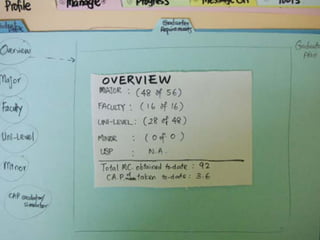 Profile
Manage
Progress
Message
Tools
Graduation
Requirements
Overview
Major
Faculty
Uni-Level
Minor
CAP
simulator
Graduate
OVERVIEW
MAJOR : (48 of 56)
FACULTY : (16 of 16)
UNI-LEVEL : (28 of 48)
MINOR : (0 of 0)
USP : N.A.
Total MC obtained to-date : 92
C.A.P. taken to-date : 3.6